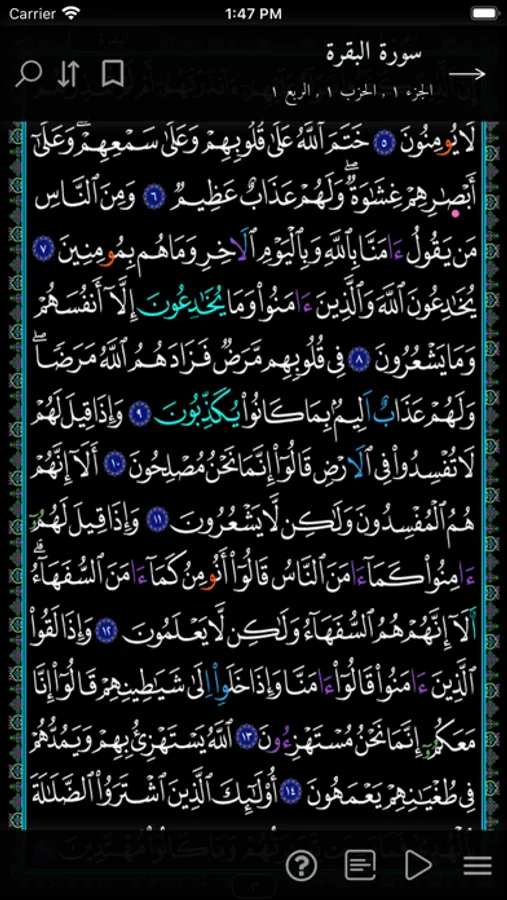 Carrier 1:47 PM
سورة البقرة
الجزء ١ , الحزب ١ , الربع ١
لَا يُومِنُونَ ٥ خَتَمَ اَللَّهُ عَلَىٰ قُلُوبِهِمْ وَعَلَىٰ سَمْعِهِمْۖ وَعَلَىٰٓ
أَبْصٰ۪رِهِمْ غِشَٰوَةٞۖ وَلَهُمْ عَذَابٌ عَظِيمٞ ٦ وَمِنَ اَلنَّاسِ
مَنْ يَّقُولُ ءَامَنَّا بِاللَّهِ وَبِالْيَوْمِ اِلَاخِرِ وَمَا هُم بِمُومِنِينَ ٧
يُخَٰدِعُونَ اَللَّهَ وَالذِينَ ءَامَنُواْ وَمَا يُخَٰدِعُونَ إِلَّآ أَنفُسَهُمْ
وَمَا يَشْعُرُونَ ٨ فِے قُلُوبِهِم مَّرَضٞ فَزَادَهُمُ اُللَّهُ مَرَضاٗۖ
وَلَهُمْ عَذَابٌ اَلِيمُۢ بِمَا كَانُواْ يُكَذِّبُونَ ٩ وَإِذَا قِيلَ لَهُمْ
لَا تُفْسِدُواْ فِے اِلَارْضِ قَالُوٓاْ إِنَّمَا نَحْنُ مُصْلِحُونَ ١٠ أَلَآ إِنَّهُمْ
هُمُ اُلْمُفْسِدُونَ وَلَٰكِن لَّا يَشْعُرُونَ ١١ وَإِذَا قِيلَ لَهُمُۥٓ
ءَامِنُواْ كَمَآ ءَامَنَ اَلنَّاسُ قَالُوٓاْ أَنُومِنُ كَمَآ ءَامَنَ اَلسُّفَهَآءُۖ
اَلَآ إِنَّهُمْ هُمُ اُلسُّفَهَآءُ وَلَٰكِن لَّا يَعْلَمُونَ ١٢ وَإِذَا لَقُواْ
اُلذِينَ ءَامَنُواْ قَالُوٓاْ ءَامَنَّا وَإِذَا خَلَوِاْ اِلَىٰ شَيَٰطِينِهِمْ قَالُوٓاْ إِنَّا
مَعَكُمُۥٓ إِنَّمَا نَحْنُ مُسْتَهْزِءُونَ ١٣ اَللَّهُ يَسْتَهْزِئُ بِهِمْ وَيَمُدُّهُمْ
فِے طُغْيَٰنِهِمْ يَعْمَهُونَ ١٤ أُوْلَٰٓئِكَ اَلذِينَ اَشْتَرَوُاْ اُلضَّلَٰلَةَ